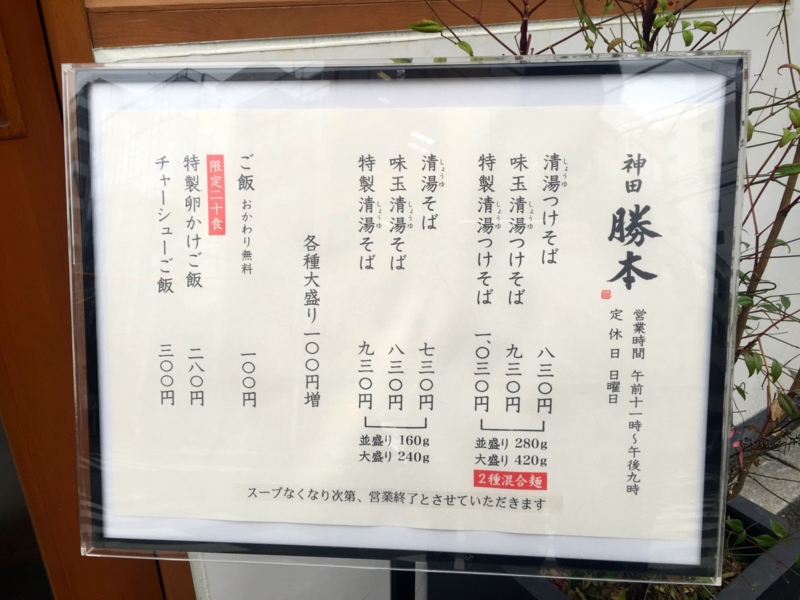 神田 勝本
営業時間 午前十一時～午後九時
定休日 日曜日
清湯つけそば 八三〇円
味玉清湯つけそば 九三〇円
特製清湯つけそば 一、〇三〇円
並盛り 280g
大盛り 420g
2種混合麺
清湯そば 七三〇円
味玉清湯そば 八三〇円
特製清湯そば 九三〇円
並盛り 160g
大盛り 240g
各種大盛り一〇〇円増
ご飯 おかわり無料 一〇〇円
限定二十食
特製卵かけご飯 二八〇円
チャーシューご飯 三〇〇円
スープなくなり次第、営業終了とさせていただきます